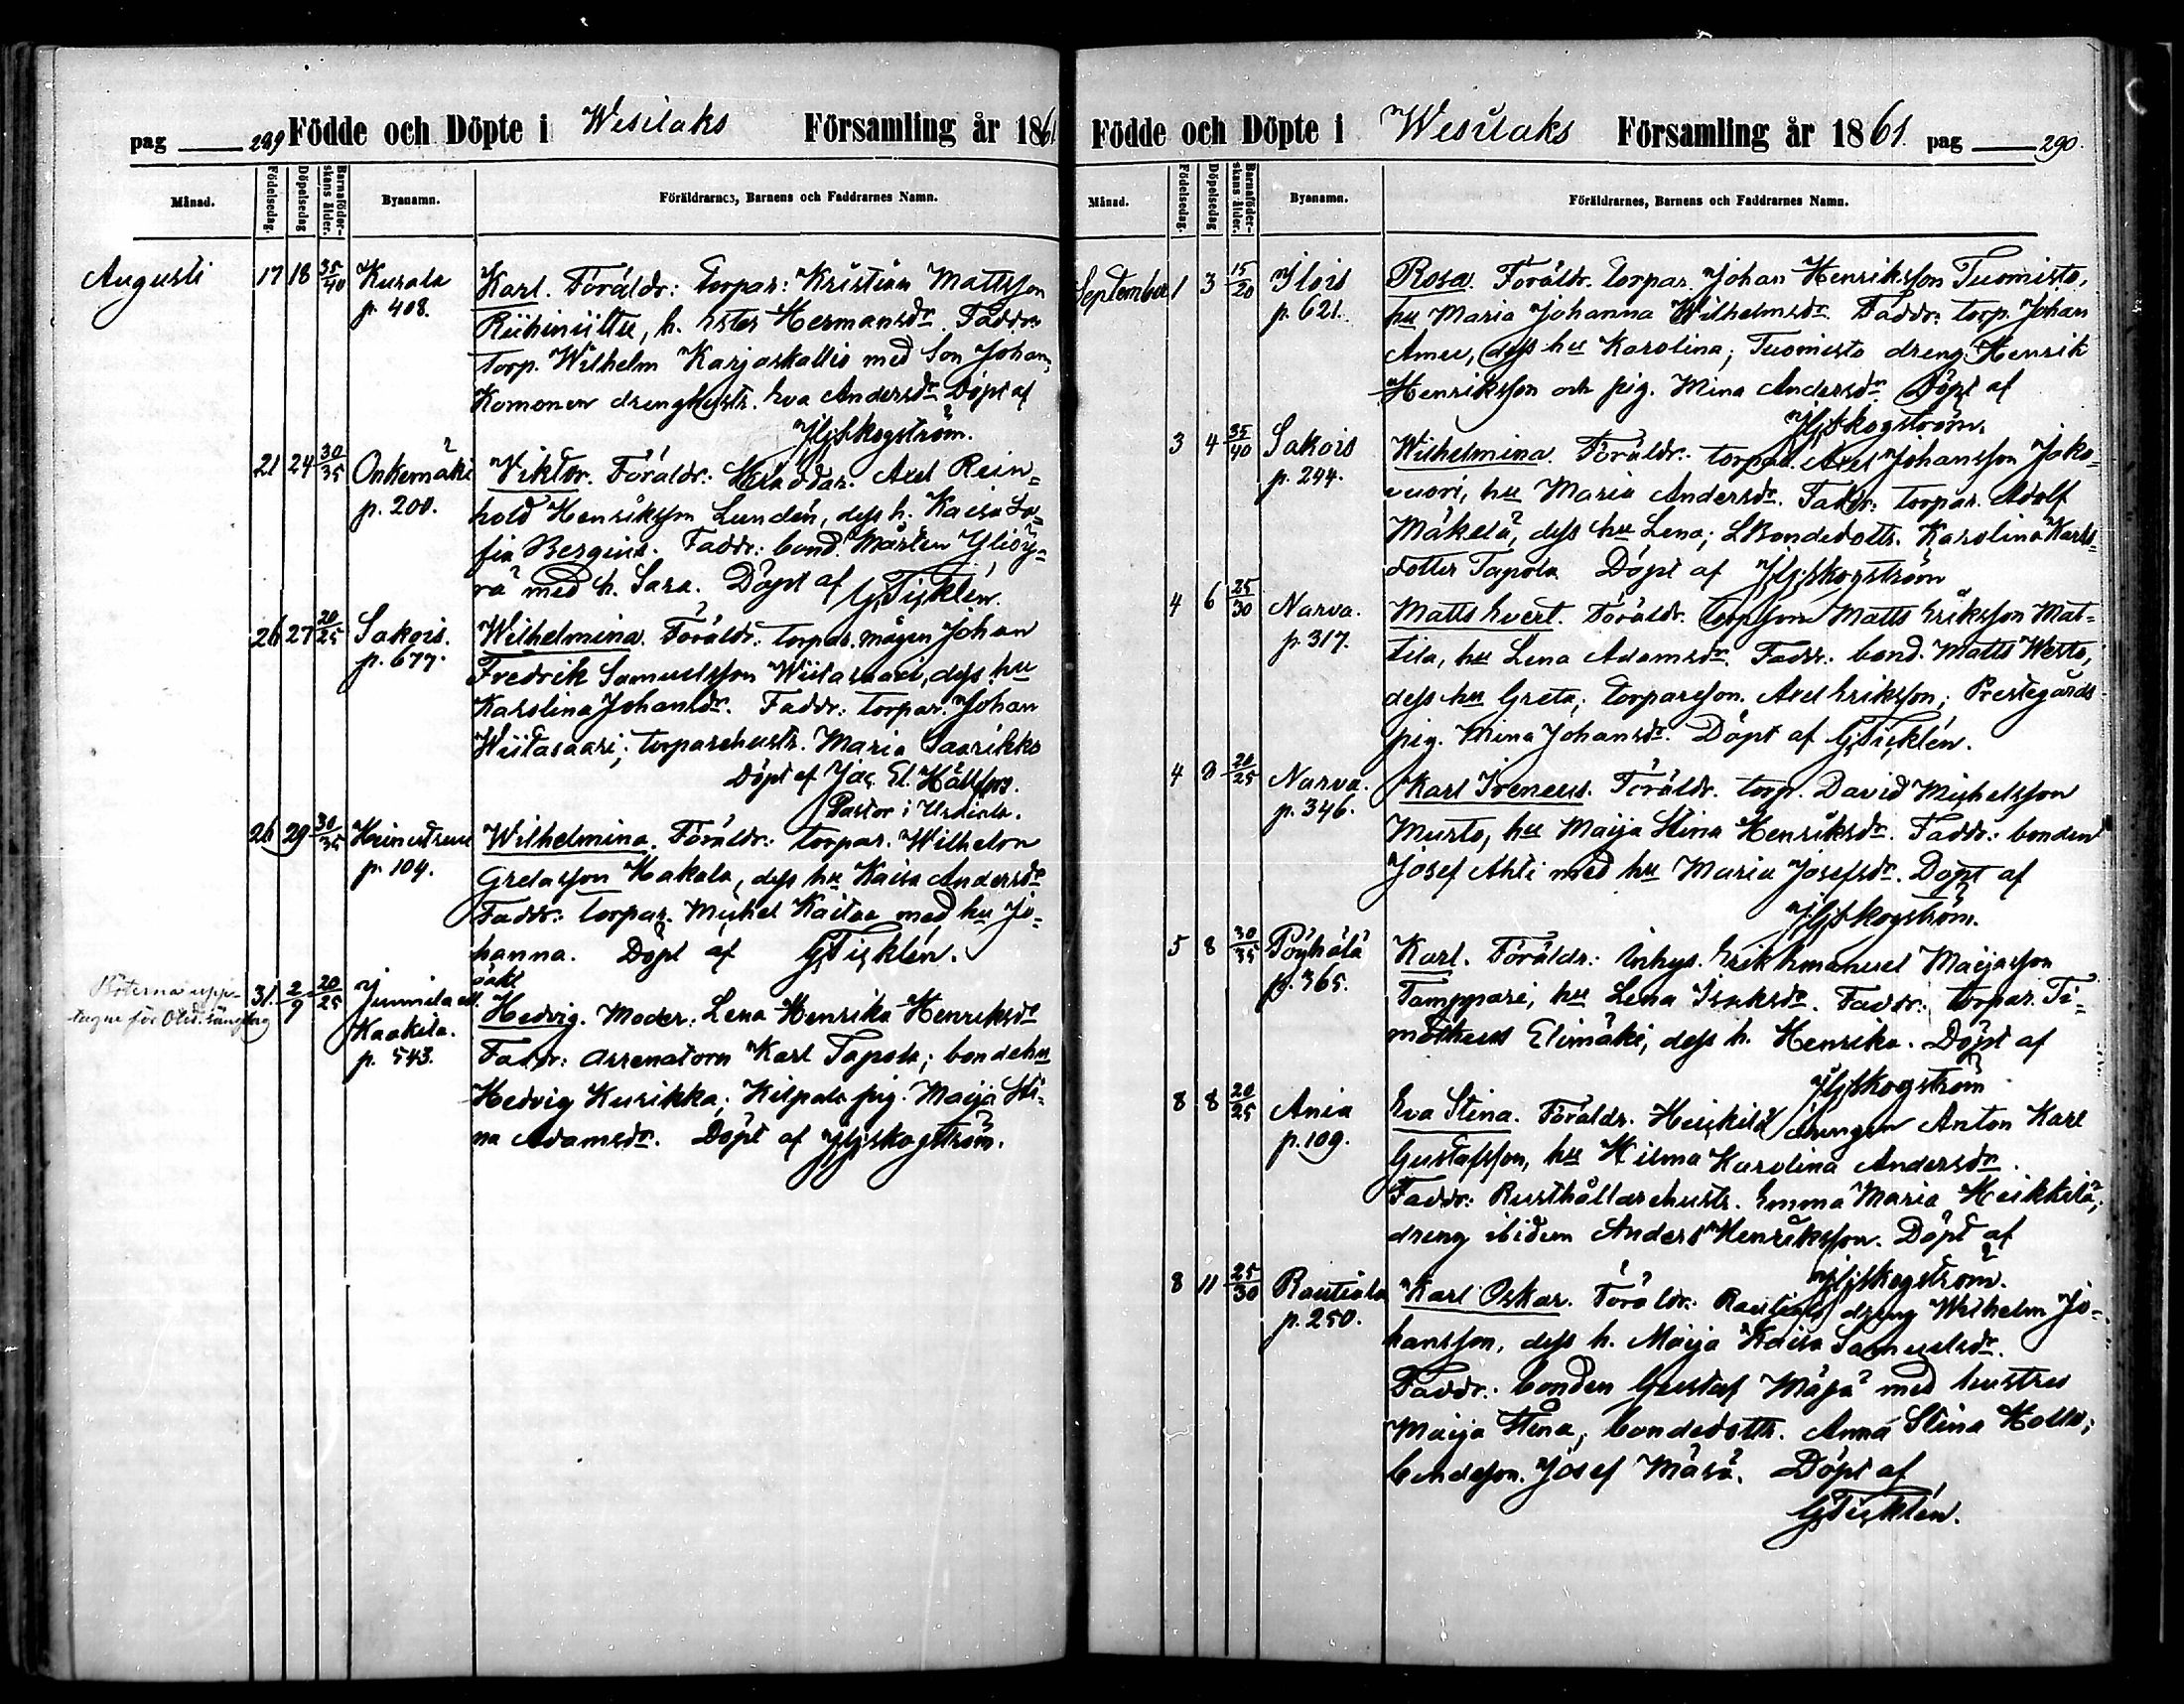 pag 289 Födde och Döpte i Wesilaks Församling år 1861
Månad. Födelsedag. Döpelsedag Barnaföderskans ålder. Byanamn. Föräldrarnes, Barnens och Faddrarnes Namn.
Augusti 17 18 35/40 Kurala Karl. Föräldr: torpar: Kristian Mattsson
p. 408. h. Ester Hermansdr. Faddr:
torp. Wilhelm Karjaskallio med Son Johan,
Komonen drenghustr. Eva Andersdr. Döpt af
Skogström.
21 24 30/35 Onkemäki Viktor. Föräldr: Axel Rein=
p. 200. hold Henriksson Lundén, dess h. Kaisa So=
fia Bergius. Faddr: bond. Mårten Yliöy=
rä med h. Sara. Döpt af G. Ticklén.
26 27 20/25 Sakois. Wilhelmina. Föräldr: torpar. mågen Johan
p. 677. Fredrik Samuelsson Wiitasaari, dess hu
Karolina Johansdr. Faddr: torpar. Johan
Wiitasaari; torparehustr. Maria Saarikko
Döpt af Jac. El. Hällfors.
Pastor i Urdiala.
26 29 30/35 Wilhelmina. Föräldr: torpar. Wilhelm
p. 109. Gretasson Hakala, dess hu Kaisa Andersdr
Faddr: torpar. Michel Kaitaa med hu Jo=
hanna. Döpt af G. Ticklén.
Böterna upp=
tagne för
31. 2/9 20/25 Junnila ell. oäkt
Kaakila. Hedvig. Moder: Lena Henrika Henriksdr
p. 543. Faddr: arrenatorn Karl Tapola; bondehu
Hedvig Kurikka; Kilpala pig. Maija Sti=
na Adamsdr. Döpt af Skogström.
Födde och Döpte i Wesilaks Församling år 1861. pag 290.
Månad. Födelsedag. Döpelsedag Barnaföderskans ålder. Byanamn. Föräldrarnes, Barnens och Faddrarnes Namn.
September 1 3 15/20 Ilois Rosa. Föräldr. torpar. Johan Henriksson Tuomisto,
p. 621. hu Maria Johanna Wilhelmsdr. Faddr: torp. Johan
dess hu Karolina; Tuomisto dreng. Henrik
Henriksson och pig. Mina Andersdr. Döpt af
Skogström.
3 4 35/40 Sakois Wilhelmina. Föräldr. torpar. Axel Johansson Jako=
p. 294. vuori, hu Maria Andersdr. Faddr: torpar. Adolf
Mäkelä, dess hu Lena; Bondedottr. Karolina Karls=
dotter Tapola Döpt af Skogström
4 6 25/30 Narva. Matts Evert. Föräldr. torpson Matts Eriksson Mat=
p. 317. tila, hu Lena Adamsdr. Faddr: bond. Matts Westo,
dess hu Greta; torpareson. Axel Eriksson; Prestegårds
pig. Mina Johansdr. Döpt af G. Ticklén.
4 8 20/25 Narva. Karl Ireneus. Föräldr. torp. David Michelsson
p. 346. Musto, hu Maija Stina Henriksdr. Faddr: bonden
Josef Ahti med hu Maria Josefsdr. Döpt af
Skogström.
5 8 30/35 Pöyhölä Karl. Föräldr: Inhys. Erik Emanuel Maijasson
p. 365. Tamppari, hu Lena Isaksdr. Faddr: torpar. Ti=
motheus Elimäki, dess h. Henrika. Döpt af
Skogström
8 8 20/25 Ania Eva Stina. Föräldr. Heickilä drengen Anton Karl
p. 109. Gustafsson, hu Hilma Karolina Andersdr.
Faddr: Rusthållarehustr. Emma Maria Heikkilä;
dreng ibidem Anders Henriksson. Döpt af
Skogström.
8 11 25/30 Rautiala Karl Oskar. Föräldr: Rautiala dreng Wilhelm Jo=
p. 250. hansson, dess h. Maija Kaisa Samuelsdr.
Faddr: bonden Gustaf Märä med hustru
Maija Stina; bondedottr. Anna Stina Hollo;
bondeson. Josef Märä. Döpt af
G. Ticklén.